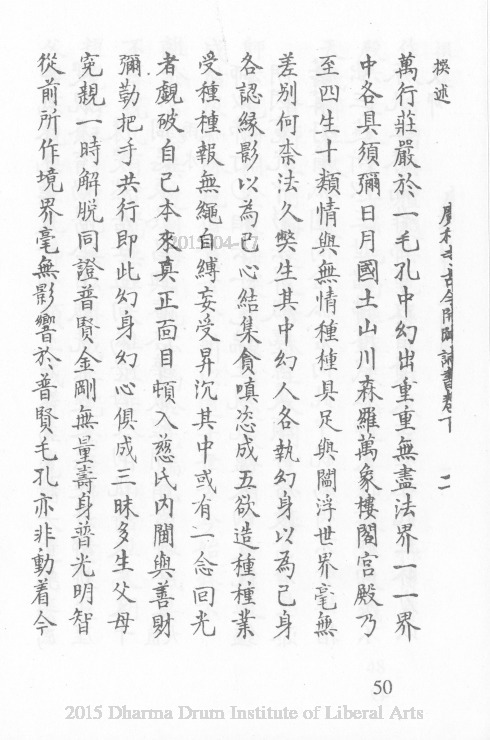 撰述
萬行莊嚴於一毛孔中幻出重重無盡法界一一界
中各具須彌日月國土山川森羅萬象樓閣宮殿乃
至四生十類情與無情種種具足與閻浮世界毫無
差別何柰法久獘生其中幻人各執幻身以為己身
各認緣影以為己心結集貪嗔恣成五欲造種種業
受種種報無繩自縛妄受昇沉其中或有一念回光
者覷破自己本來真正面目頓入慈氏內閫與善財
彌勒把手共行即此幻身幻心俱成三昧多生父母
冤親一時解脫同證普賢金剛無量壽身普光明智
從前所作境界毫無影響於普賢毛孔亦非動着今
古今 卷下 二
2015-04-17
50
2015 Dharma Drum Institute of Liberal Arts